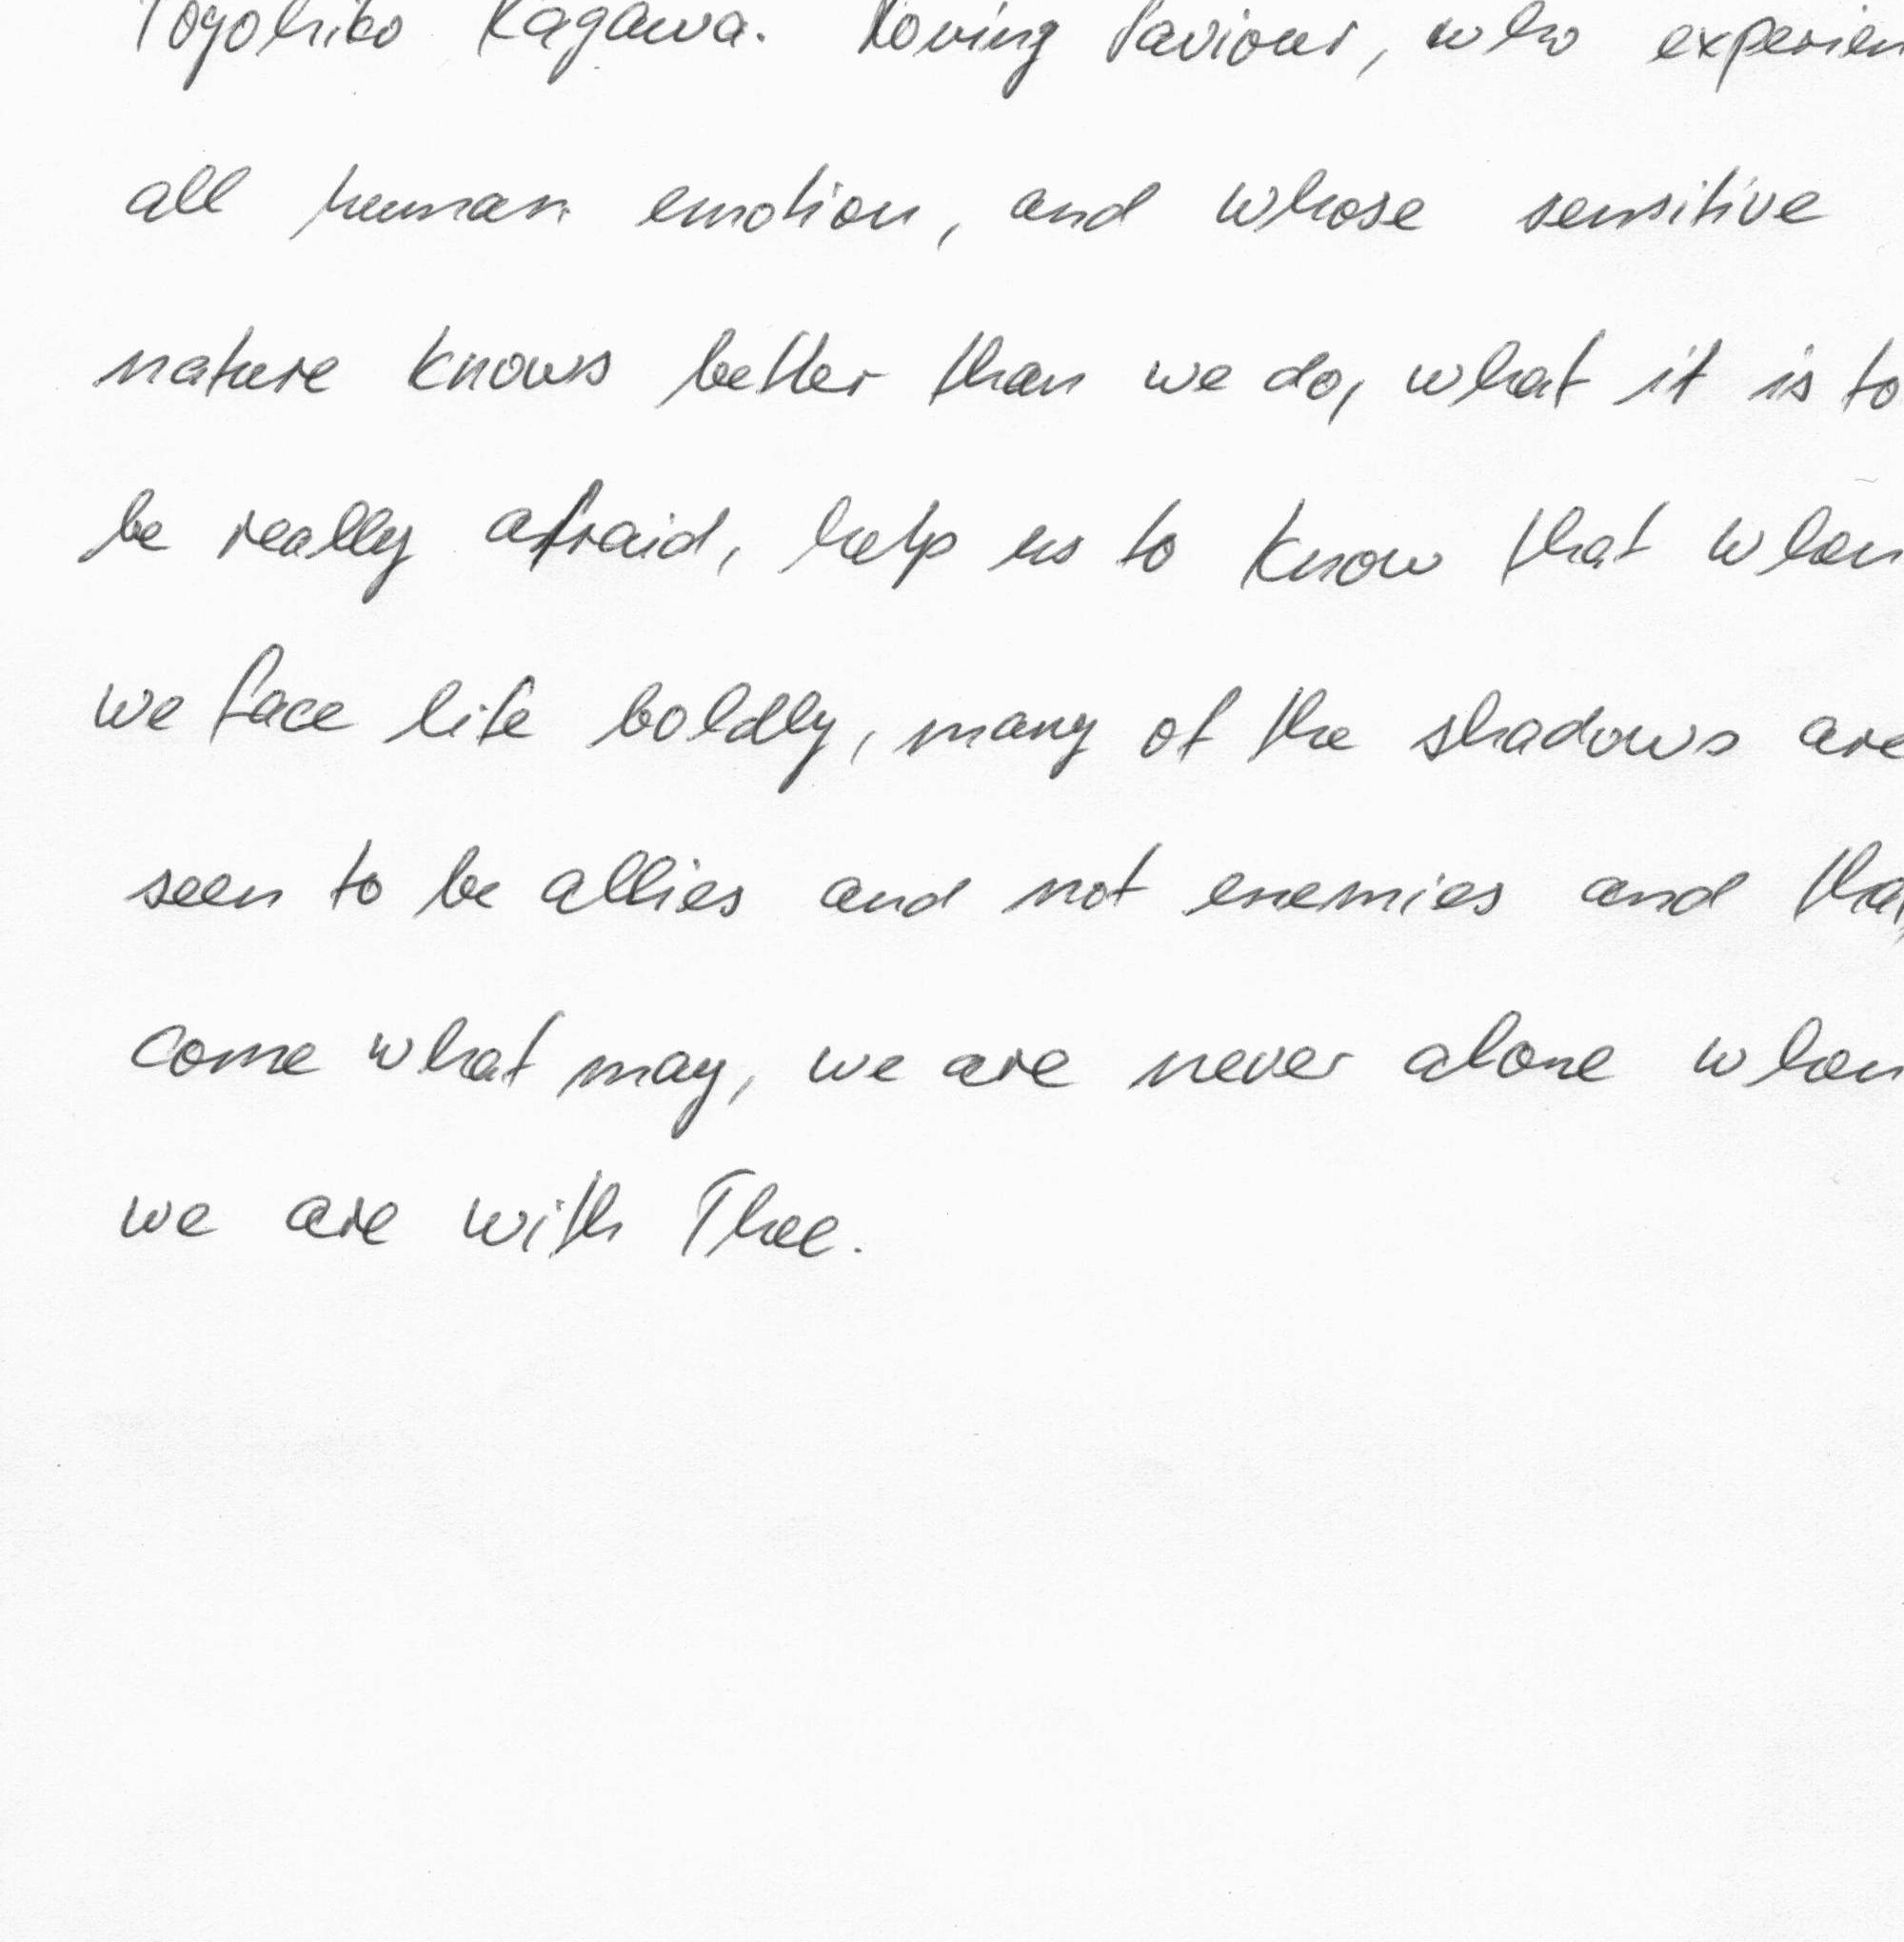 Toyohiko Kagawa. Loving Saviour, who experien
all human emotion, and whose sensitive
nature knows better than we do, what it is to
be really afraid, help us to know that when
we face life boldly, many of the shadows are
seen to be allies and not enemies and that,
come what may, we are never alone when
we are with Thee.